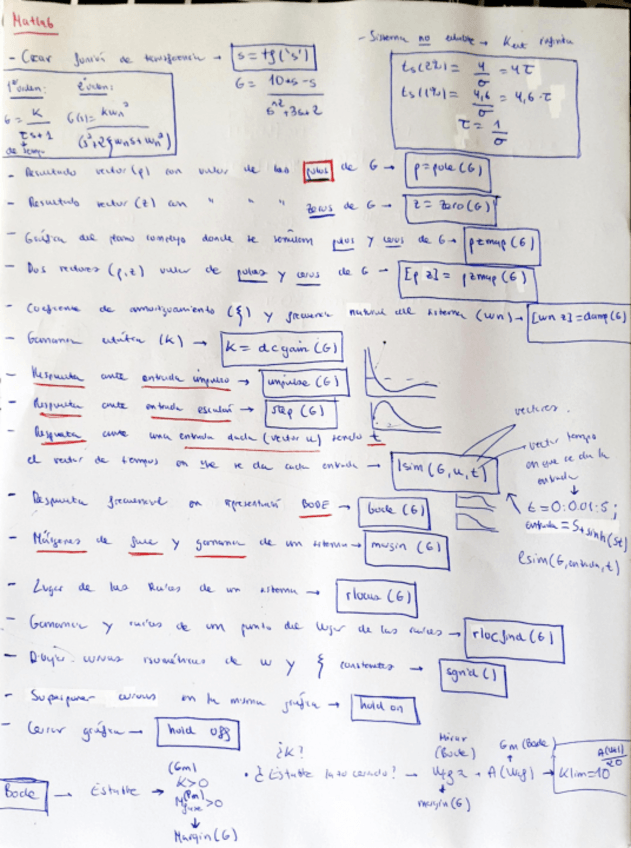 Matlab
- Sistema no estable → Kest infinita
- Crear función de transferencia → s = tf('s')
1er orden: 2º orden:
G = K / τs+1
G(s) = kwn² / (s²+2ξwns+wn²)
de tiempo
G = 10*s-s / s^2+3s+2
ts(2%) = 4/σ = 4τ
ts(1%) = 4,6/σ = 4,6·τ
τ = 1/σ
- Resultado vector (p) con valor de los polos de G → p = pole(G)
- Resultado vector (z) con " " " zeros de G → z = zero(G)
- Gráfica del plano complejo donde se señalan polos y ceros de G → pzmap(G)
- Dos vectores (p,z) valor de polos y ceros de G → [p z] = pzmap(G)
- Coeficiente de amortiguamiento (ξ) y frecuencia natural del sistema (wn) → [wn z] = damp(G)
- Ganancia estática (K) → K = dcgain(G)
- Respuesta ante entrada impulso → impulse(G)
- Respuesta ante entrada escalón → step(G)
- Respuesta ante una entrada dada (vector u) siendo t
el vector de tiempos en que se da cada entrada → lsim(G,u,t)
vectores.
vector tiempo
en que se da la
entrada
t = 0:0.01:5;
lsim(G,entrada,t)
- Respuesta frecuencial en representación BODE → bode(G)
- Márgenes de fase y ganancia de un sistema → margin(G)
- Lugar de las Raíces de un sistema → rlocus(G)
- Ganancia y raíces de un punto del lugar de las raíces → rlocfind(G)
- Dibujar curvas isométricas de w y ξ constantes → sgrid()
- Superponer curvas en la misma gráfica → hold on
- Cerar gráfica → hold off
Bode → Estable →
(Gm)
K>0
(Pm)
Mfase>0
Margin(G)
¿K?
• ¿Estable lazo cerrado? → Wfg → A(Wfg) → Klim = 10
Mirar
(Bode)
Gm (Bode)
margin(G)